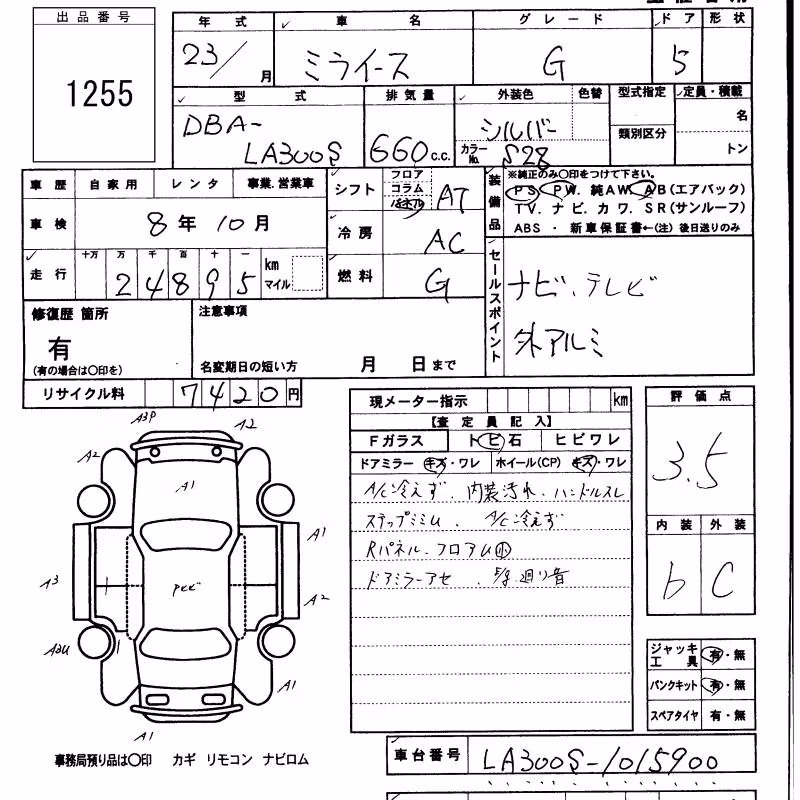 出品番号
1255
年式 車名 グレード ドア 形状
23/ 月 ミライース G 5
型式 排気量 外装色 色替 型式指定 定員・積載
DBA- LA300S 660 c.c. シルバー 名
カラーNo. S28 類別区分 トン
車歴 自家用 レンタ 事業.営業車
車検 8年 10月
走行 十万 万 千 百 十 一
24895 km マイル
シフト フロア コラム AT
冷房 AC
燃料 G
装備品 ※純正のみ〇印をつけて下さい。
PS. PW. 純AW. AB(エアバック)
TV. ナビ. カワ. SR(サンルーフ)
ABS ・ 新車保証書←(注)後日送りのみ
セールスポイント
ナビ、テレビ
外アルミ
修復歴 箇所
有
(有の場合は〇印を)
注意事項
名変期日の短い方 月 日まで
リサイクル料 7420円
現メーター指示 km
【査定員記入】
Fガラス トビ石 ヒビワレ
ドアミラー キズ・ワレ ホイール(CP) キズ・ワレ
A/C冷えず、内装汚れ、ハンドルスレ
A/C冷えず
Rパネル、フロアム小
ドアミラーアセ
評価点
3.5
内装 外装
b C
ジャッキ工具 有・無
パンクキット 有・無
スペアタイヤ 有・無
A3P A2
A2 A1
A1
A3 A2
A1
A1
事務局預り品は〇印 カギ リモコン ナビロム
車台番号 LA300S-1015900